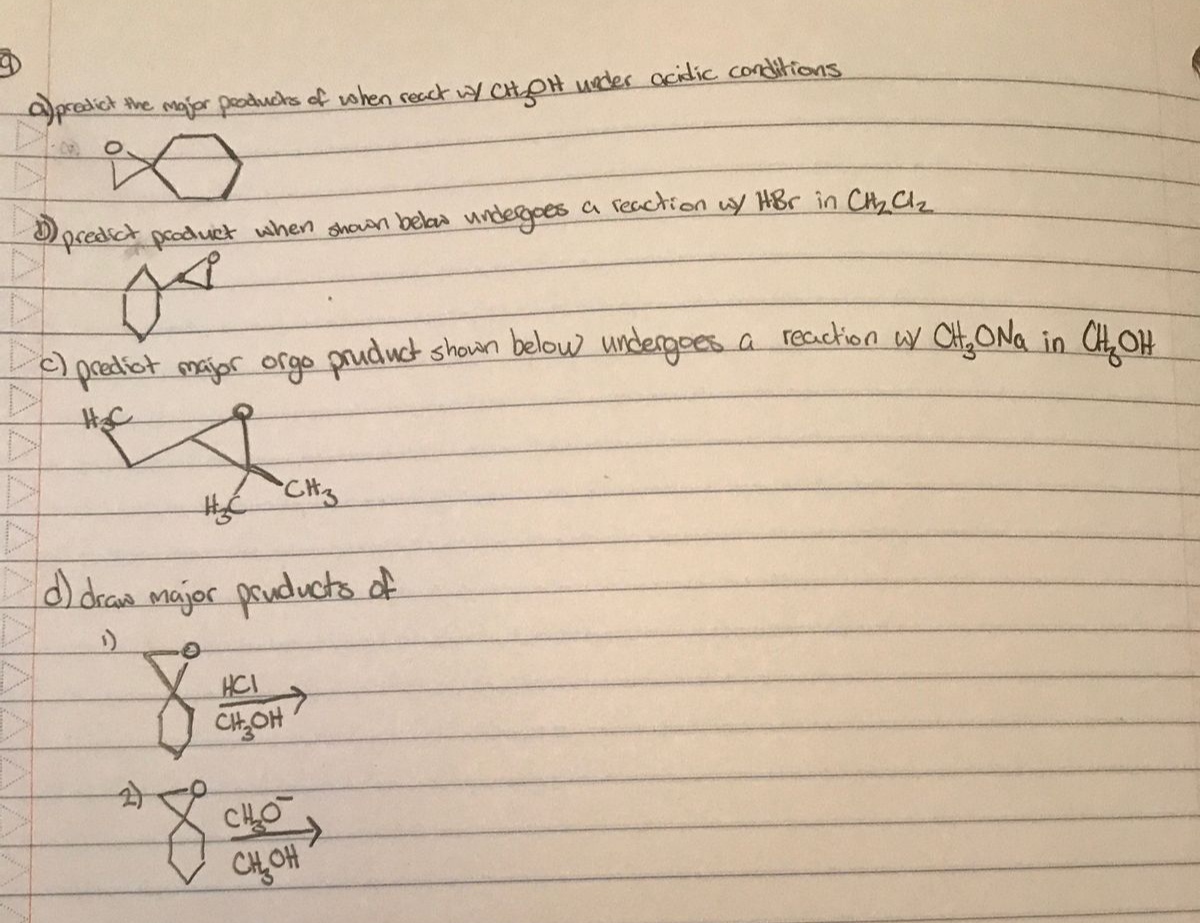 9
a) predict the major products of when react w/ CH3OH under acidic conditions
O
b) predict product when shown below undergoes a reaction w/ HBr in CH2Cl2
O
c) predict major orgo pruduct shown below undergoes a reaction w/ CH3ONa in CH3OH
H3C O
H3C CH3
d) draw major pruducts of
1) O
HCl
CH3OH
2) O
CH3O⁻
CH3OH